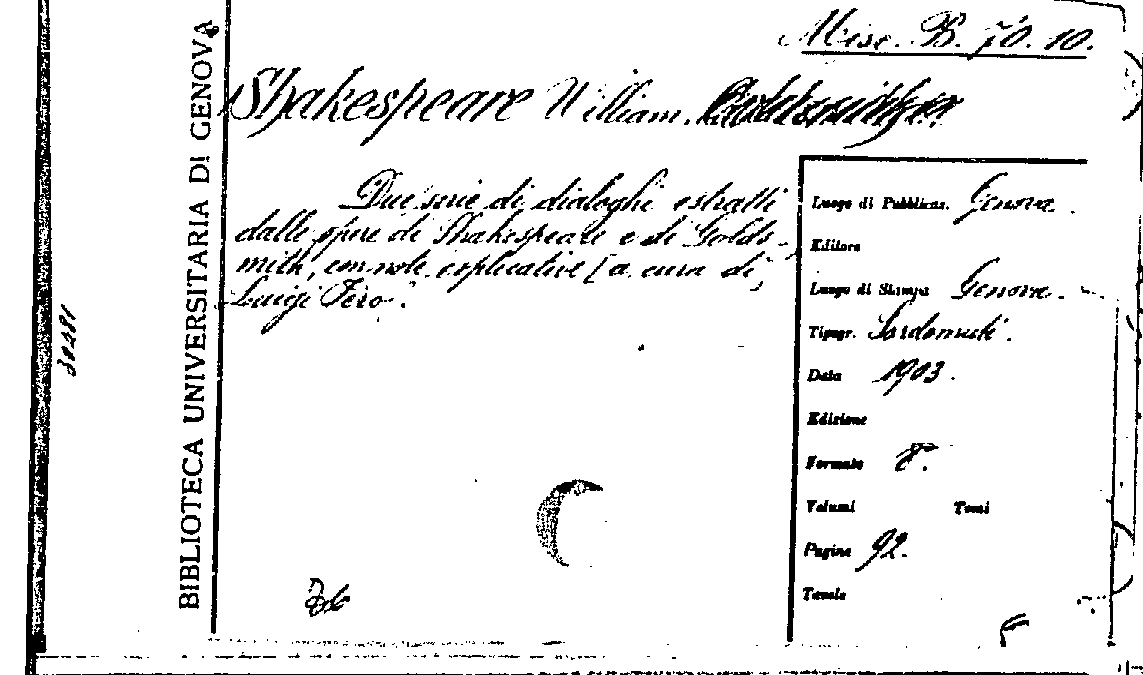 Misc. B. 70. 10.
Shakespeare William.
Due serie di dialoghi estratti
dalle opere di Shakespeare e di Golds-
mith, con note esplicative [a cura di,
Luigi Fero.
Luogo di Pubblicaz. Genova.
Editore
Luogo di Stampa Genova.
Tipogr. Sordomuti.
Data 1903.
Edizione
Formato 8°.
Volumi Tomi
Pagine 92.
Tavole
BIBLIOTECA UNIVERSITARIA DI GENOVA